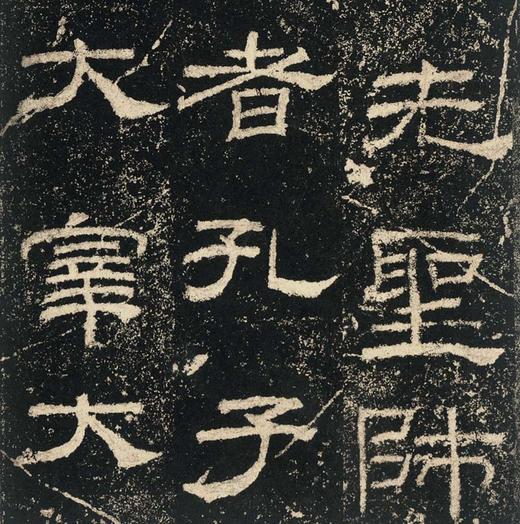 先聖師
者孔子
大宰大